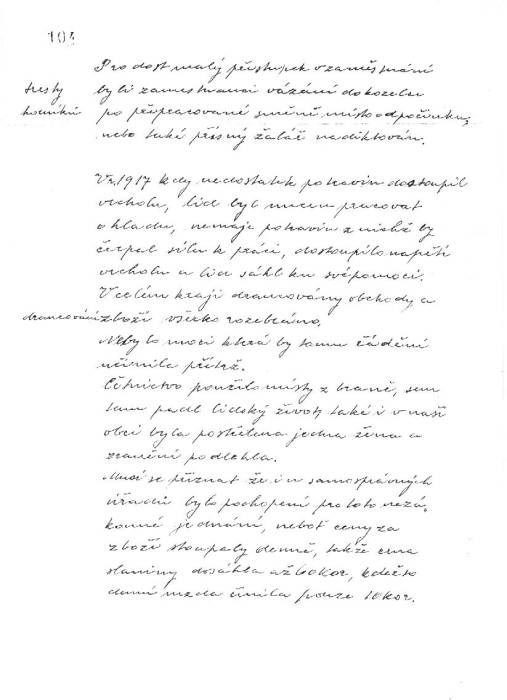 104
Pro dost malý přestupek v zaměstnání
tresty
byli zaměstnanci vázáni do kozelce
horníků
po přepracované směně místo odpočinku,
nebo také přísný žalář nadiktován.
V r. 1917 kdy nedostatek potravin dostoupil
vrcholu, lid byl nucen pracovat
o hladu, nemaje potravin z nichž by
čerpal sílu k práci, dostoupilo napětí
vrcholu a lid sáhl ku svépomoci.
V celém kraji drancovány obchody a
drancování
zboží všecko rozebráno.
Nebylo moci která by tomu řádění
učinila přítrž.
Četnictvo použilo místy zbraně, sem
tam padl lidský život, také i v naší
obci byla postřelena jedna žena a
zranění podlehla.
Musí se přiznat že i u samosprávných
úřadů bylo pochopení pro toto nezá-
konné jednání, neboť ceny za
zboží stoupaly denně, takže cena
slaniny dosáhla až 60 Kor, kdežto
denní mzda činila pouze 10 kor.